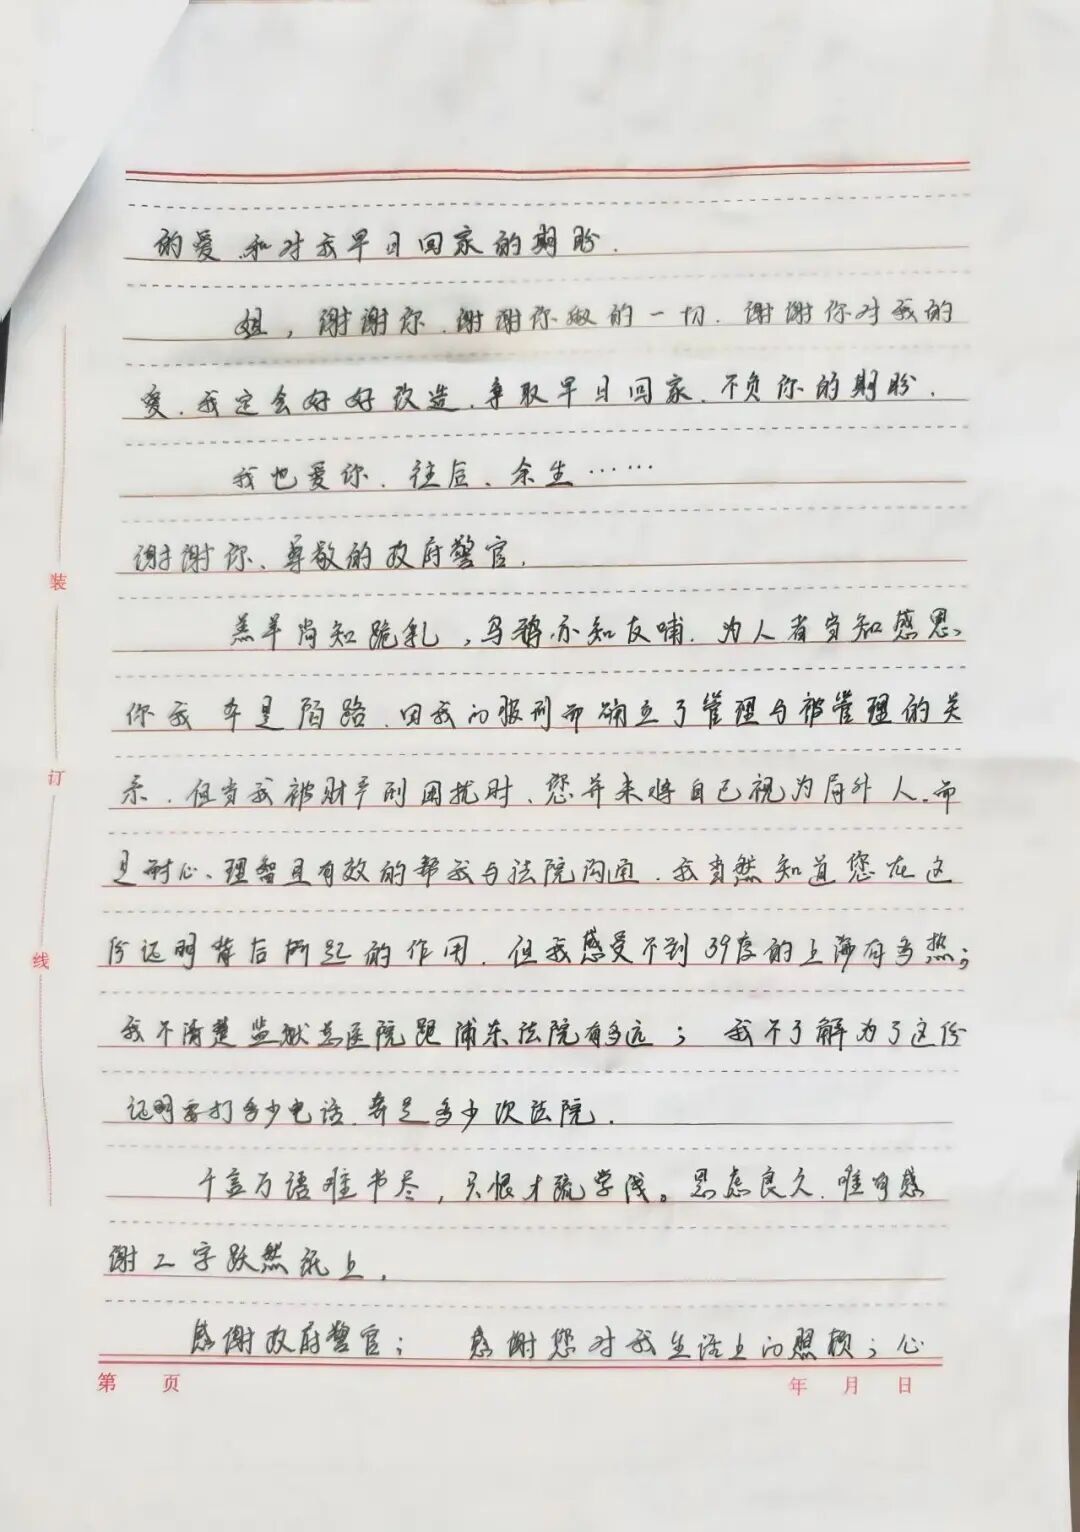 的爱、和对我早日回家的期盼.
姐，谢谢你、谢谢你做的一切. 谢谢你对我的
爱、我定会好好改造、争取早日回家、不负你的期盼.
我也爱你、往后、余生……
谢谢你、尊敬的政府警官.
羔羊尚知跪乳，乌鸦亦知反哺. 为人者当知感恩、
你我本是陌路、因我的服刑而确立了管理与被管理的关
系、但当我被财产刑困扰时、您并未将自己视为局外人、而
是耐心、理智且有效的帮我与法院沟通、我当然知道您在这
份证明背后所起的作用、但我感受不到39度的上海有多热；
我不清楚监狱总医院距浦东法院有多远； 我不了解为了这份
证明要打多少电话、奔走多少次法院.
千言万语难书尽，只恨才疏学浅。思虑良久、唯有感
谢二字跃然纸上.
感谢政府警官； 感谢您对我生活上的照顾；心
装
订
线
第 页
年 月 日